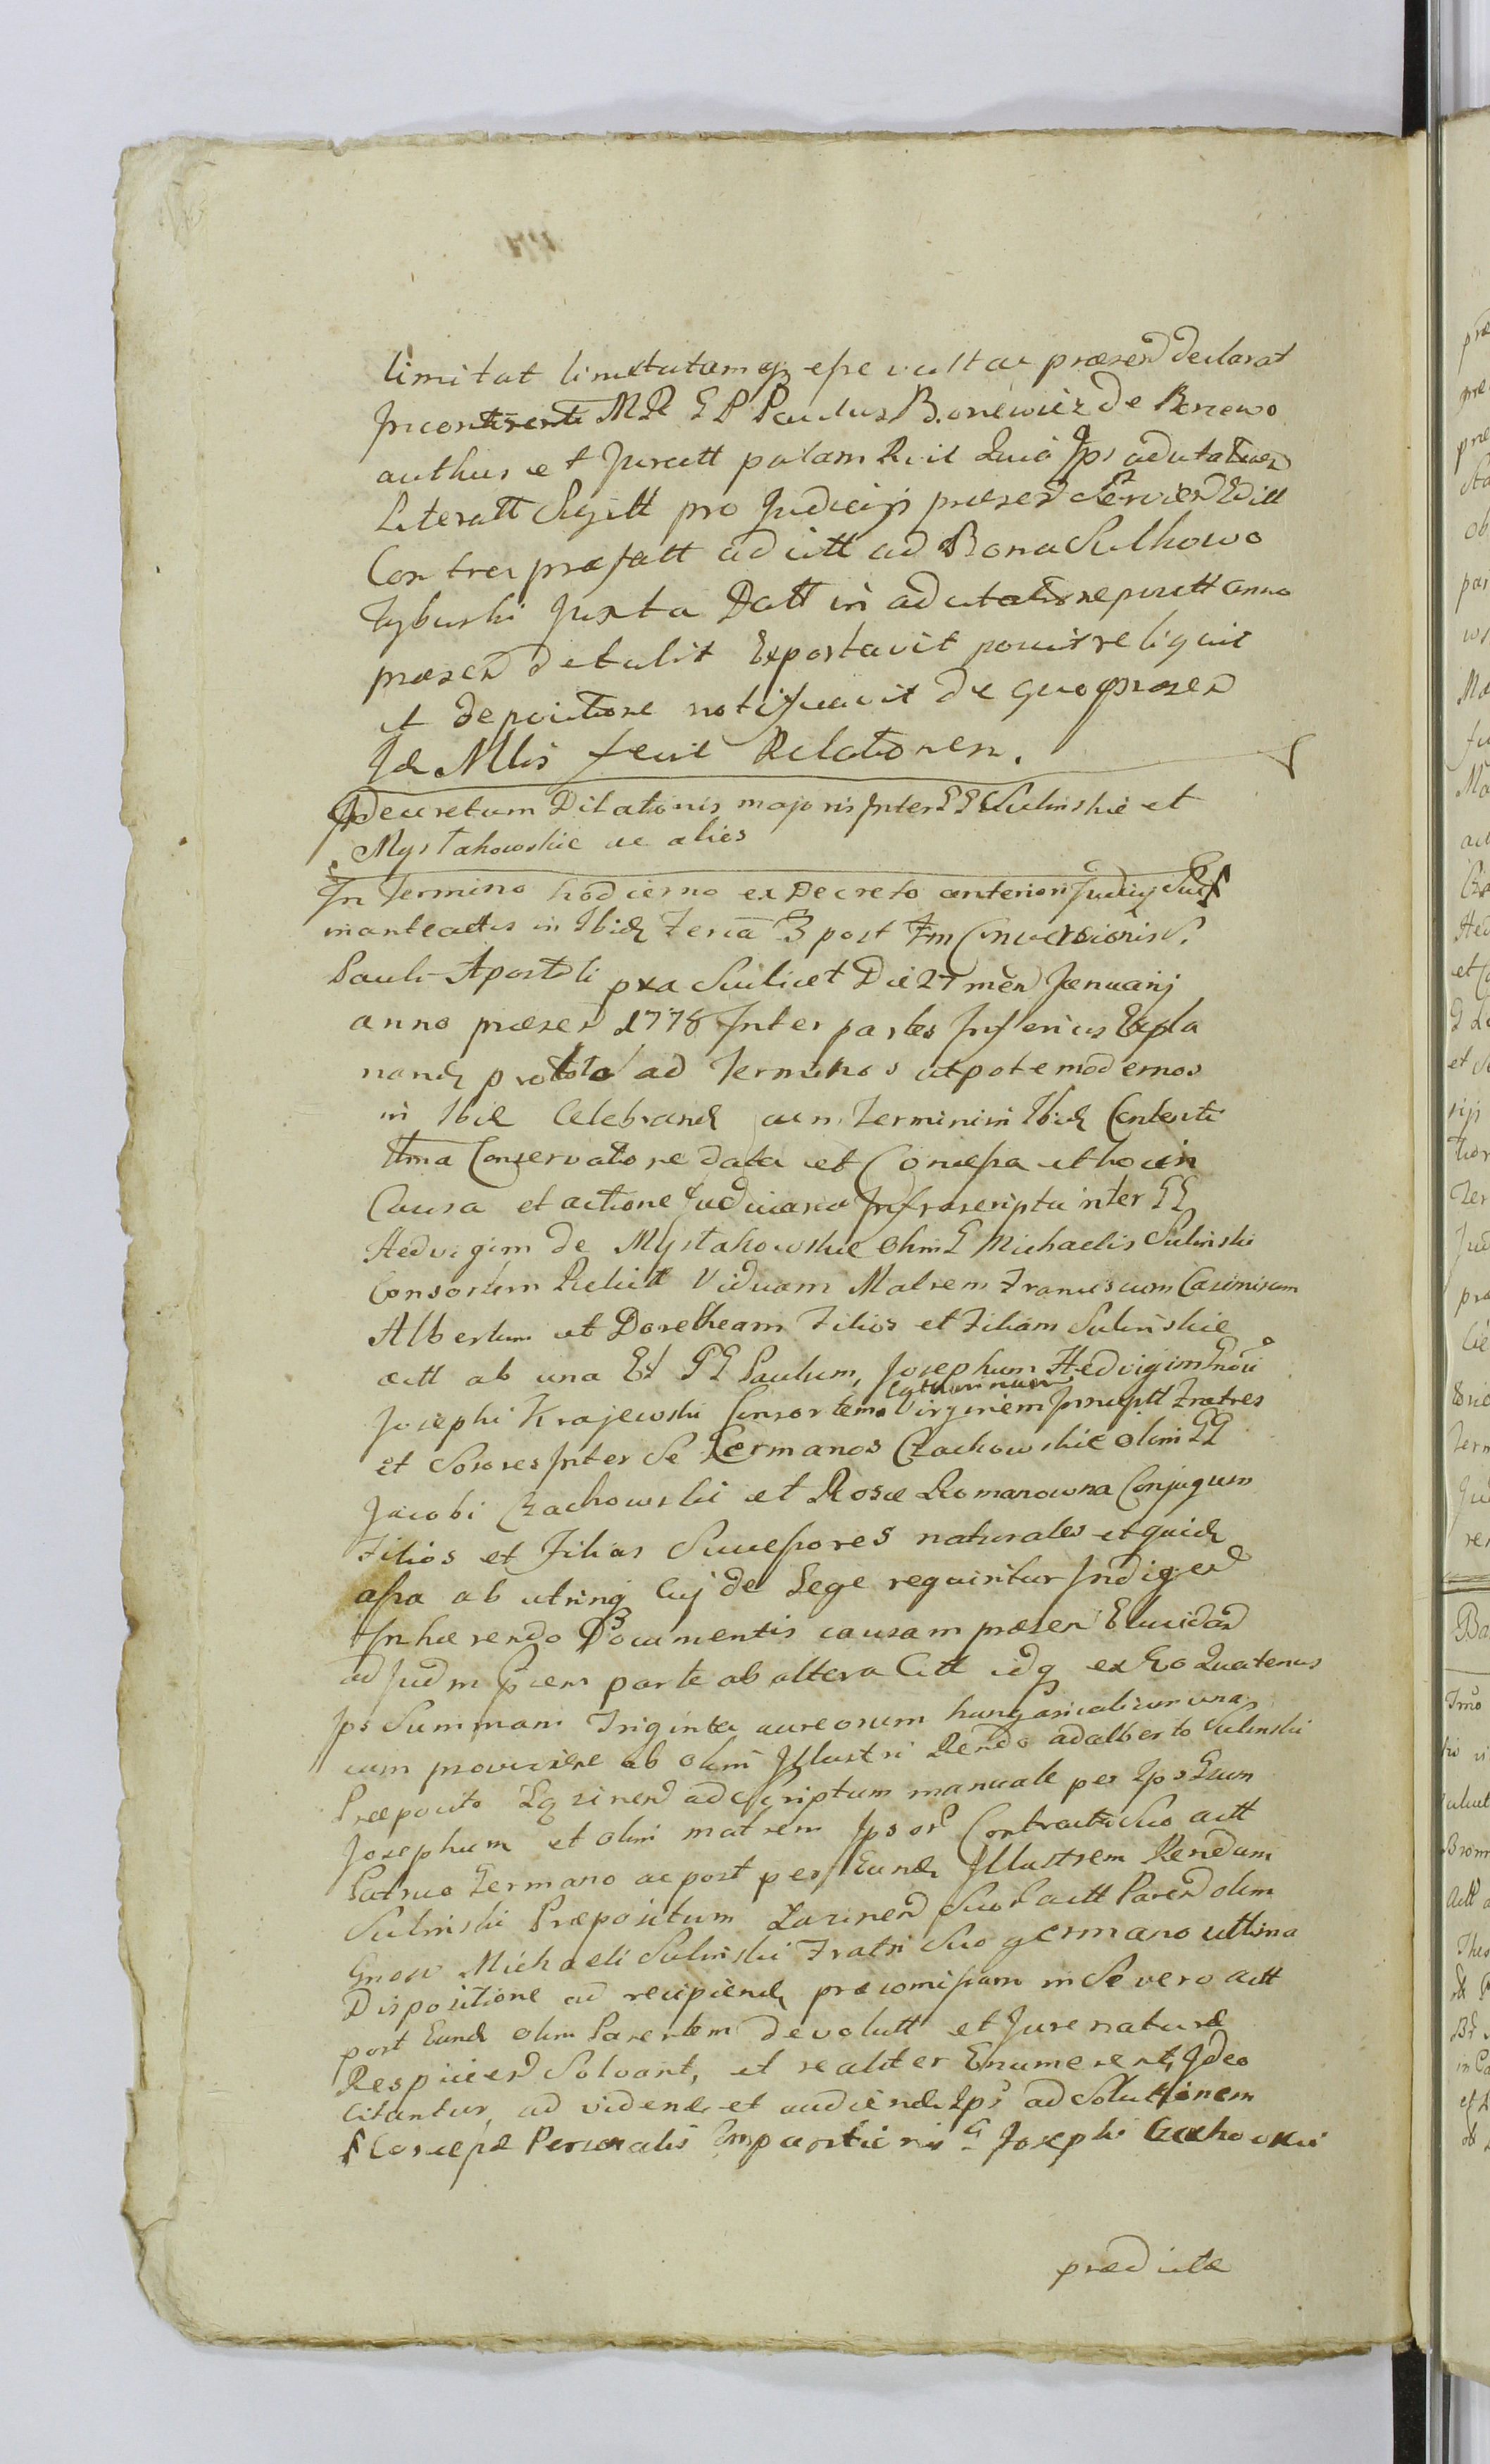 limitat limitatamq esse vult ac præsen declarat
Incontinenti MR G P Paulus Bonewicz De Bonewo
authus et Juratt palam R Quia Ips adcitatuen
Literatt Sigitt pro Judicijs præsen Servien
Contra præfatt ad citt ad Bona Sulkowo
Tyburski Juxta Datt in adcitatione positt anno
præsen detulit Exportavit posuit reliquit
et depositione notificavit de quo præsen
Id Mlis fecit Relationem.
Decretum Dilationis majoris Inter GG Sulinskie et
Mystakowskie ac alios
In Termino hodierno ex Decreto anteriori Judicij
in anteactis in Ibid Feria 3 post Fm Conversionis S.
Pauli Apostoli pxa Scilicet Die 27 men Januarij
anno præsen 1778 Inter partes Inferius Expla
nand ad Terminos utpote modernos
in Ibid Celebrand cum Terminini Ibid Contenti
ttma Conservatione data et Concessa et hoc in
Causa et actione Judiciaria Infrascripta inter GG
Hedvigim de Mystakowskie olim G Michaelis Sulinski
Consortem Relictt Viduam Matrem Franciscum Casimirum
Albertum et Dorotheam Filios et Filiam Sulinskie
actt ab una Et GG Paulum, Josephum Hedvigim Gnosi
Josephi Krajewski Consortem Catharinam Virginem Innuptt Fratres
et Sorores Inter Se Germanos Czachowskie olim GG
Jacobi Czachowski et Rosæ Romanowna Conjugum
Filios et Filias Successores naturales et quid
assa ab utrinq Cuj de Lege requiritur Indigen
Inhærendo Documentis causam præsen Elucidan
ad Judm parte ab altera Citt idq ex Eo Quatenus
Ips Summam Triginta aureorum hungaricalium una
cum provisione ab olim Illustri Rendo adalberto Sulinski
Præposito ad Scriptum manuale per Ips Gsum
Josephum et olim matrem Ipsor Contracti Suo actt
Patruo Germano ac post per Eund Illustrem Rendum
Sulinski Præpositum Suor actt Paren olim
Gnoso Michaeli Sulinski Fratri Suo germano ultima
Dispositione ad recipiend præcomissam in Se vero actt
post Eund olim Parentem devolutt et Jure naturæ
Respicien Solvant, et realiter Enumerent, Ideo
Citantur, ad vidend et audiend Ips ad Solutionem
Concessæ Personalis G Josephi Czachowski
prædictæ